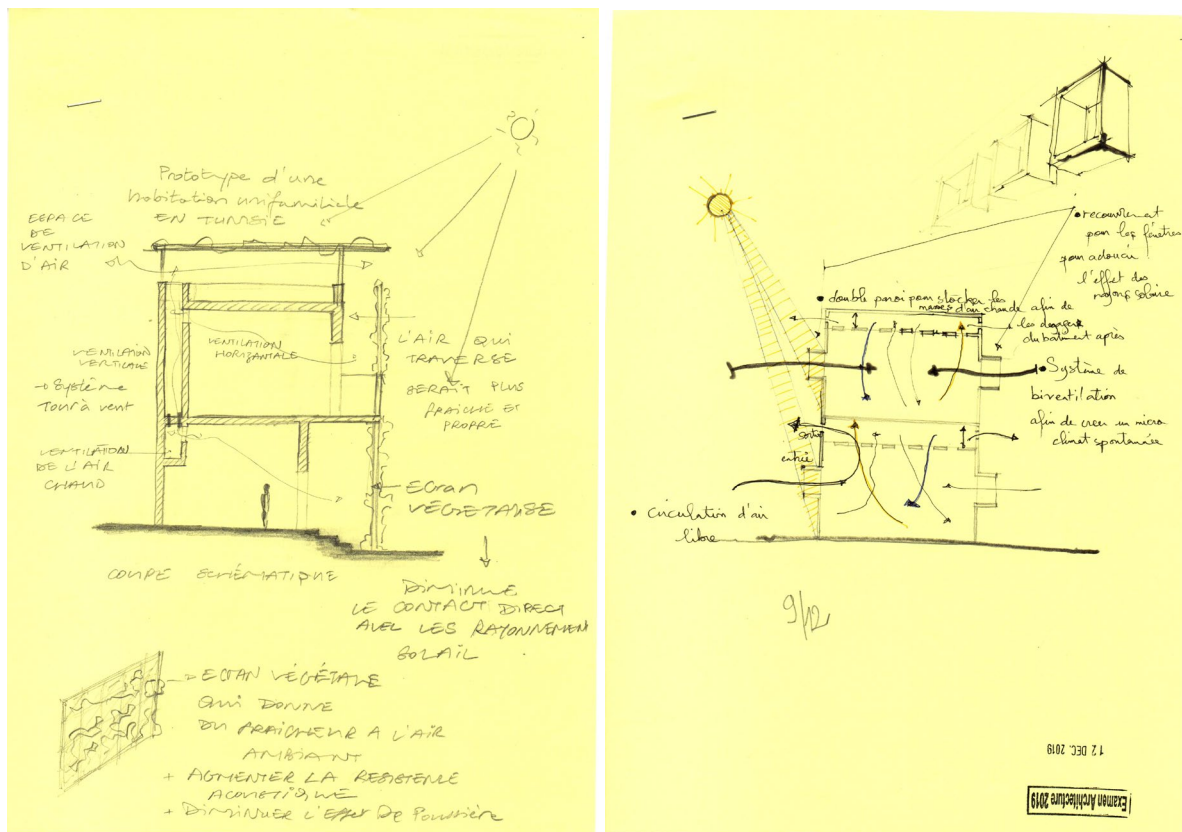 Prototype d'une
habitation unifamiliale
EN TUNISIE
ESPACE
DE
VENTILATION
D'AIR
VENTILATION
VERTICALE
→ Système
Tour à vent
VENTILATION
HORIZONTALE
VENTILATION
DE L'AIR
CHAUD
L'AIR QUI
TRAVERSE
SERAIT PLUS
FRAICHE ET
PROPRE
ECRAN
VÉGÉTALE
COUPE SCHÉMATIQUE
DIMINUE
LE CONTACT DIRECT
AVEC LES RAYONNEMENT
SOLAIL
ECRAN VÉGÉTALE
QUI DONNE
DU FRAICHEUR A L'AIR
AMBIANT
+ AGMENTER LA RESISTENCE
ACOUSTIQUE
+ DIMINUER L'Effet De Poussière
• recouvrement
pour les fenêtres
pour adoucir
l'effet des
rayons solaire
• double paroi pour stocker les
masses d'air chaude afin de
les dégager
du bâtiment après
• Système de
biventilation
afin de creer un micro
climat spontannée
sortie
entrée
• circulation d'air
libre
9/12
12 DEC. 2019
Examen Architecture 2019